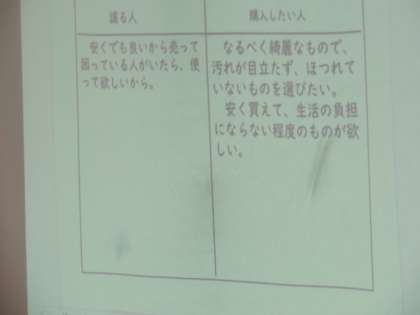 譲る人
購入したい人
安くでも良いから売って
困っている人がいたら、使
って欲しいから。
なるべく綺麗なもので、
汚れが目立たず、ほつれて
いないものを選びたい。
安く買えて、生活の負担
にならない程度のものが欲
しい。